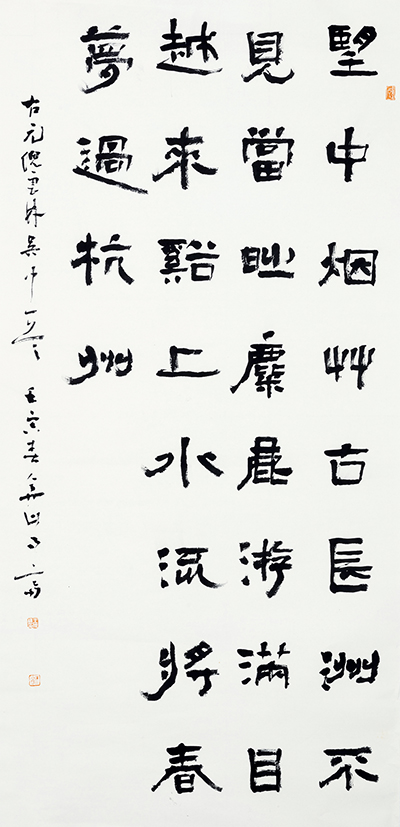 望中烟艸古長洲不
見當時麋鹿游滿目
越來谿上水流將春
夢過杭州
右元倪雲林吳中一首壬寅春